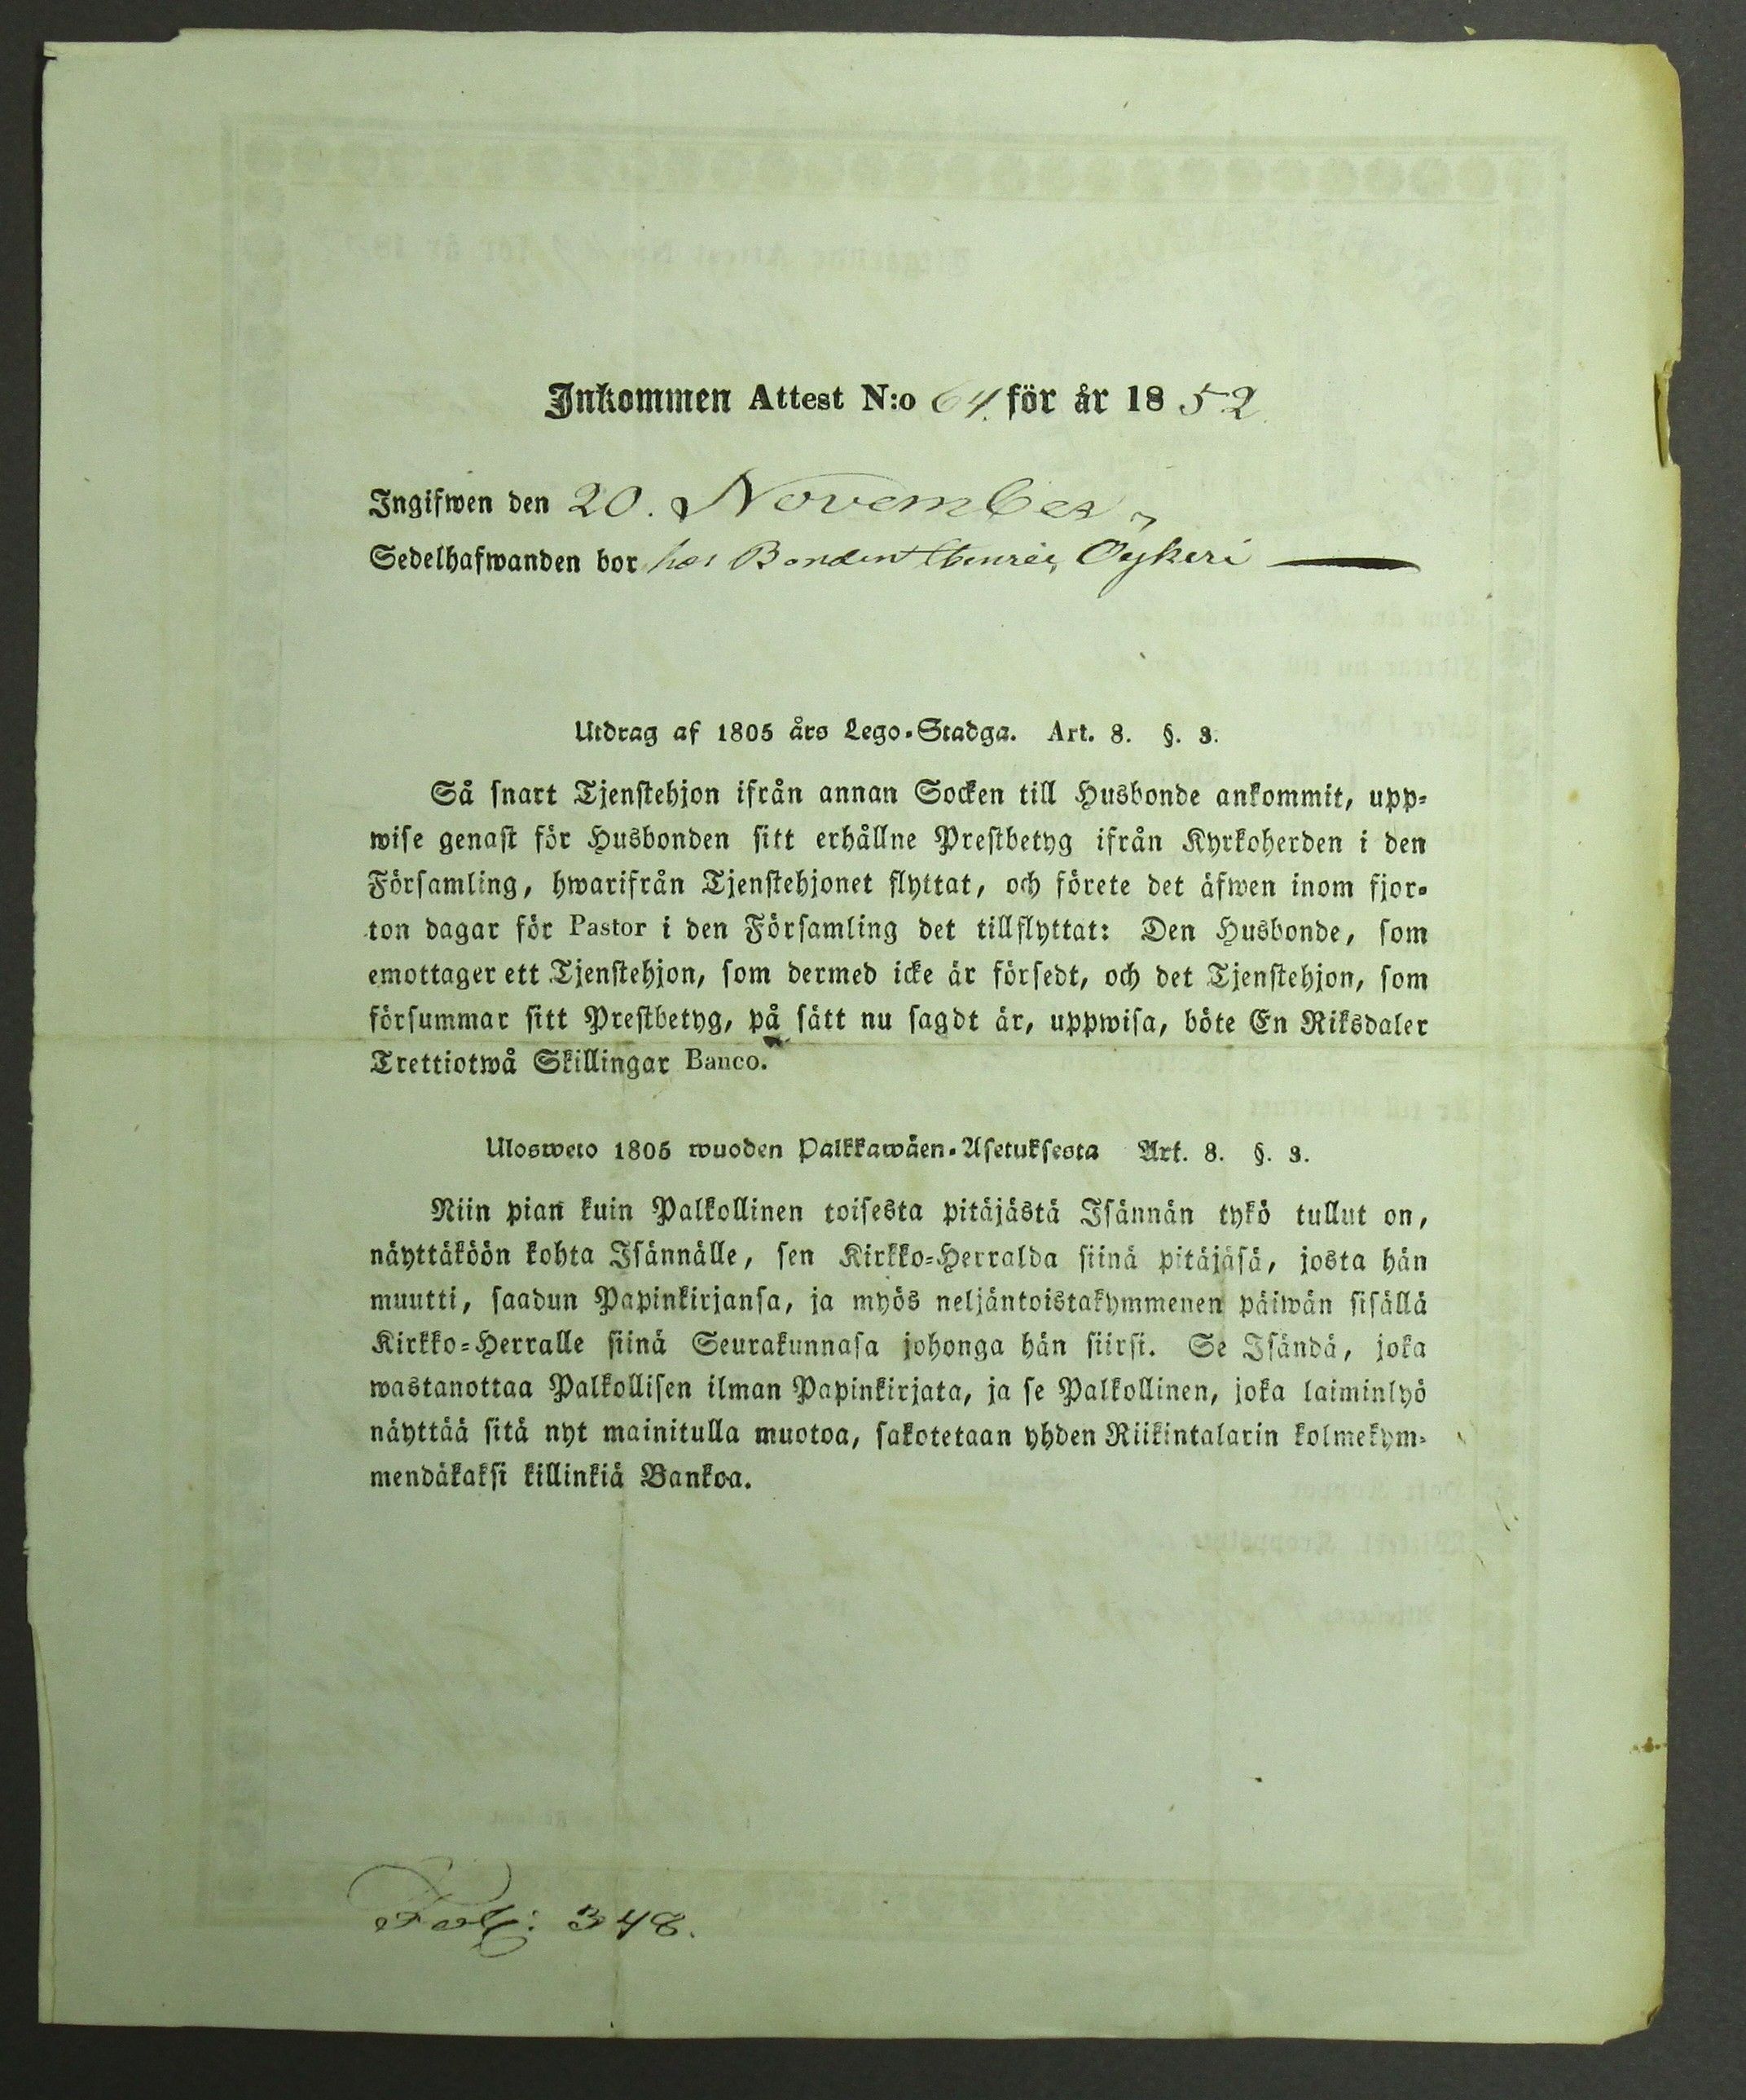 Inkommen Attest N:o 64. för år 1852.
Ingifwen den 20. November,
Sedelhafwanden bor hos Bonden Henric Öykeri
Utdrag af 1805 års Lego-Stadga. Art. 8. §. 3.
Så snart Tjenstehjon ifrån annan Socken till Husbonde ankommit, upp-
wise genast för Husbonden sitt erhållne Prestbetyg ifrån Kyrkoherden i den
Församling, hwarifrån Tjenstehjonet flyttat, och förete det äfwen inom fjor-
ton dagar för Pastor i den Församling det tillflyttat: Den Husbonde, som
emottager ett Tjenstehjon, som dermed icke är försedt, och det Tjenstehjon, som
försummar sitt Prestbetyg, på sätt nu sagdt är, uppwisa, böte En Riksdaler
Trettiotwå Skillingar Banco.
Ulosweto 1805 wuoden Palkkawäen-Asetuksesta Art. 8. §. 3.
Niin pian kuin Palkollinen toisesta pitäjästä Isännän tykö tullut on,
näyttäköön kohta Isännälle, sen Kirkko-Herralda siinä pitäjäsä, josta hän
muutti, saadun Papinkirjansa, ja myös neljäntoistakymmenen päiwän sisällä
Kirkko-Herralle siinä Seurakunnasa johonga hän siirsi. Se Isändä, joka
wastanottaa Palkollisen ilman Papinkirjata, ja se Palkollinen, joka laiminlyö
näyttää sitä nyt mainitulla muotoa, sakotetaan yhden Riikintalarin kolmekym-
mendäkaksi killinkiä Bankoa.
348.